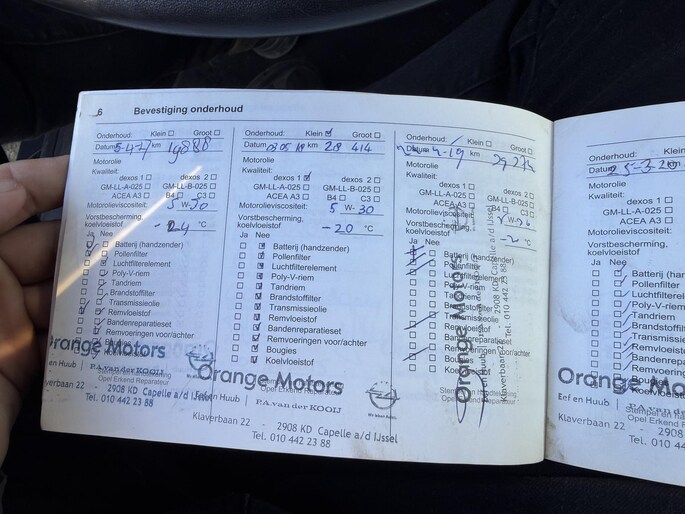 6 Bevestiging onderhoud
Onderhoud: Klein Groot
Datum 5-4-17 km 19888
Motorolie
Kwaliteit:
dexos 1 dexos 2
GM-LL-A-025 GM-LL-B-025
ACEA A3 B4 C3
Motorolieviscositeit: 5 W-30
Vorstbescherming,
koelvloeistof -24 °C
Ja Nee
Batterij (handzender)
Pollenfilter
Luchtfilterelement
Poly-V-riem
Tandriem
Brandstoffilter
Transmissieolie
Remvloeistof
Bandenreparatieset
Remvoeringen voor/achter
Bougies
Koelvloeistof
Orange Motors
Eef en Huub P.A. van der KOOIJ
Klaverbaan 22 - 2908 KD Capelle a/d IJssel
Tel. 010 442 23 88
Onderhoud: Klein Groot
Datum 03 05 18 km 28 414
Motorolie
Kwaliteit:
dexos 1 dexos 2
GM-LL-A-025 GM-LL-B-025
ACEA A3 B4 C3
Motorolieviscositeit: 5 W-30
Vorstbescherming,
koelvloeistof -20 °C
Ja Nee
Batterij (handzender)
Pollenfilter
Luchtfilterelement
Poly-V-riem
Tandriem
Brandstoffilter
Transmissieolie
Remvloeistof
Bandenreparatieset
Remvoeringen voor/achter
Bougies
Koelvloeistof
Orange Motors
Eef en Huub P.A. van der KOOIJ
Opel Erkend Reparateur
Klaverbaan 22 - 2908 KD Capelle a/d IJssel
Tel. 010 442 23 88
Onderhoud: Klein Groot
Datum km
Motorolie
Kwaliteit:
dexos 1 dexos 2
GM-LL-A-025 GM-LL-B-025
ACEA A3 B4 C3
Motorolieviscositeit:
Vorstbescherming,
koelvloeistof °C
Ja Nee
Batterij (handzender)
Pollenfilter
Luchtfilterelement
Poly-V-riem
Tandriem
Brandstoffilter
Transmissieolie
Remvloeistof
Remvoeringen voor/achter
Bougies
Orange Motors
2908 KD Capelle a/d IJssel
Tel. 010 442 23 88
Opel Erkend Reparateur
Onderhoud:
Datum
Motorolie
Kwaliteit:
dexos 1
GM-LL-A-025
ACEA A3
Motorolieviscositeit:
Vorstbescherming,
koelvloeistof
Ja Nee
Batterij (handze
Pollenfilter
Luchtfilterele
Poly-V-riem
Tandriem
Brandstoffilte
Transmissie
Remvloeisto
Bandenrepa
Remvoering
Bougies
Koelvloeisto
Orange Mo
Eef en Huub P.A. van de
Opel Erkend R
Klaverbaan 22 - 2908
Tel. 010 4